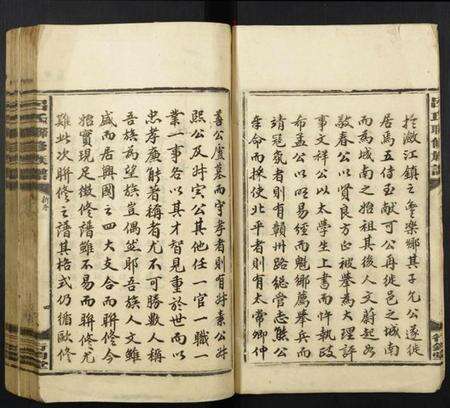 於瀲江鎮之叁樂鄉其子允公遂徙
居焉五傳至獻可公再徙邑之城南
而為城南之始祖其後人文蔚起如
敬春公以賢良方正被舉為大理評
事文祥公以太學生上書而忤執政
希孟公以易經而魁鄉薦舉兵而
靖寇氛者則有贛州路總管志熊公
奉命而採使北平者則有太常卿仲
善公廬墓而守孝者則有升素公升
熙公及升寅公其他任一官一職一
業一事各以其才智見重於世而以
忠孝廉能著稱者尤不可勝數人稱
吾族為望族豈偶然耶吾族人文雖
咸而居興國之四大支合而聯修今
始實現足徵修譜雖不易而聯修尤
難此次聯修之譜其格式仍循歐修
呂氏聯修族譜